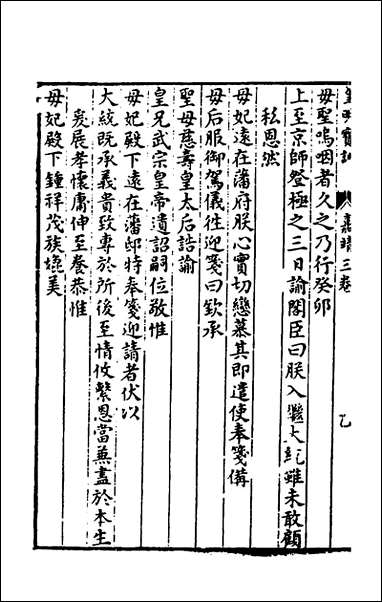 皇明寶訓　嘉靖三卷　乙
母聖嗚咽者久之乃行癸卯
上至京師登極之三日諭閣臣曰朕入繼大統雖未敢顧
私恩然
母妃遠在藩府朕心實切戀慕其即遣使奉箋備
母后服御駕儀徃迎箋曰欽承
聖母慈壽皇太后誥諭
皇兄武宗皇帝遺詔嗣位敬惟
母妃殿下遠在藩邸特奉箋迎請者伏以
大統既承義貴致專於所後至情攸繫恩當兼盡於本生
爰展孝懷庸伸至養恭惟
母妃殿下鍾祥茂族媲美